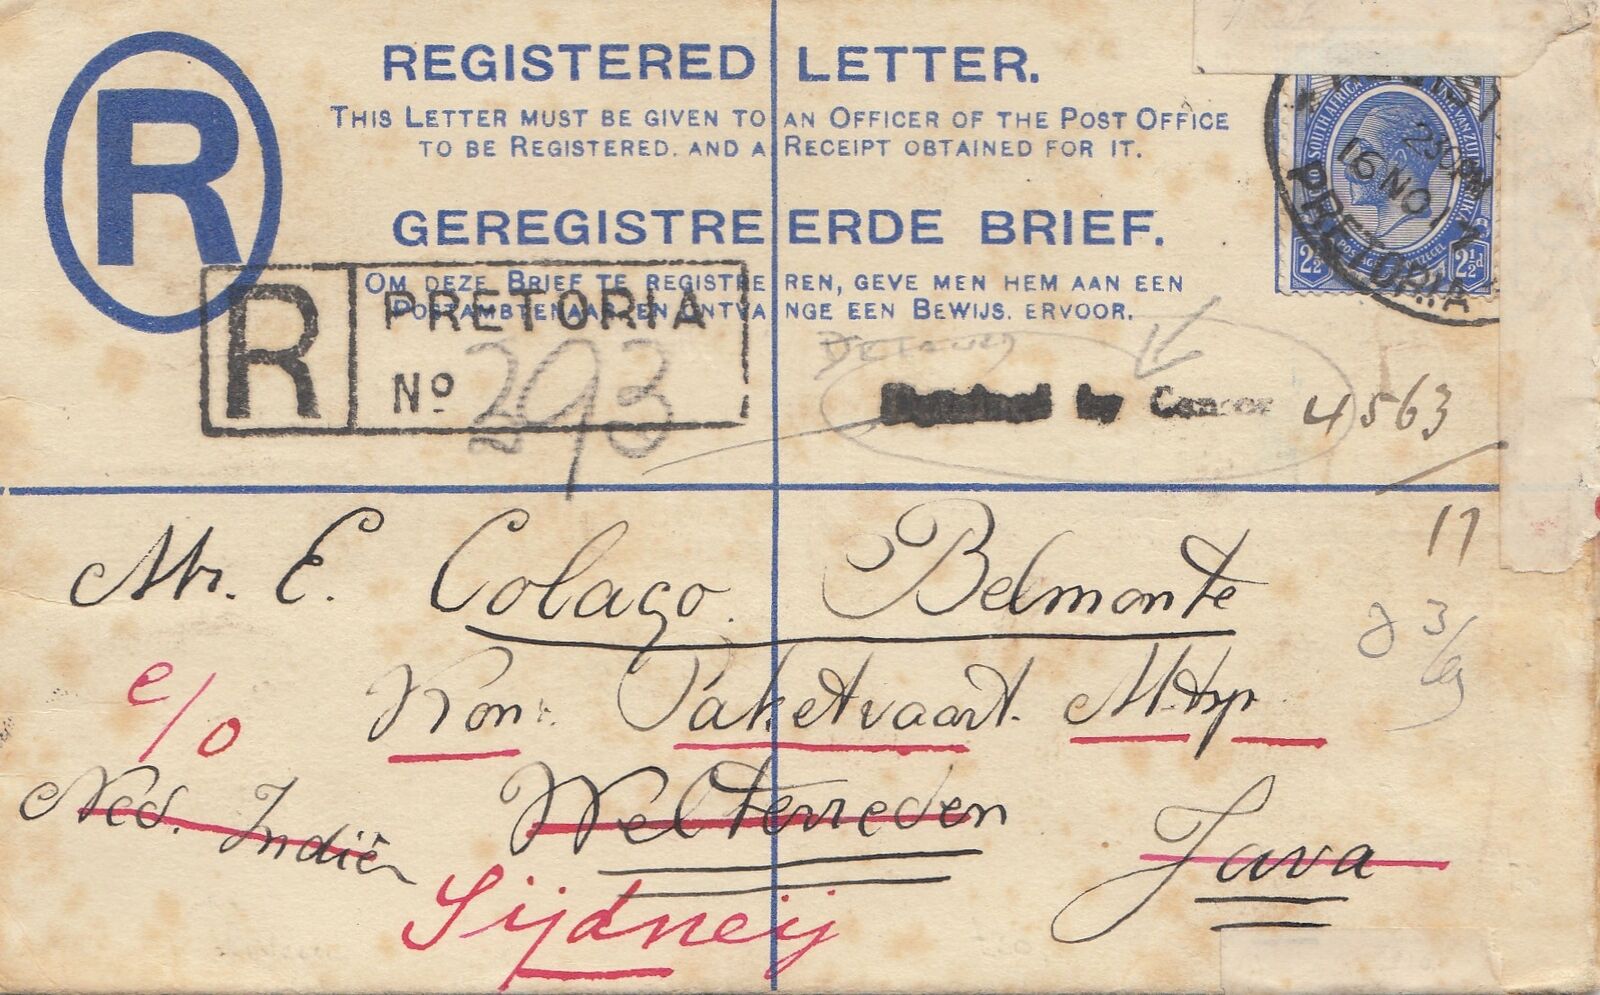 R
REGISTERED LETTER.
THIS LETTER MUST BE GIVEN TO AN OFFICER OF THE POST OFFICE
TO BE REGISTERED, AND A RECEIPT OBTAINED FOR IT.
GEREGISTREERDE BRIEF.
OM DEZE BRIEF TE REGISTREREN, GEVE MEN HEM AAN EEN
POSTAMBTENAAR EN ONTVANGE EEN BEWIJS. ERVOOR.
SOUTH AFRICA
2½ 2½d
230PM
16 NO 17
PRETORIA
R PRETORIA
No 293
Detained
Detained by Censor 4563
17
Mr. E. Colaço Belmonte
3/
c/o Kon. Paketvaart Mtsp
Ned. Indië Weltevreden Java
Sijdneij